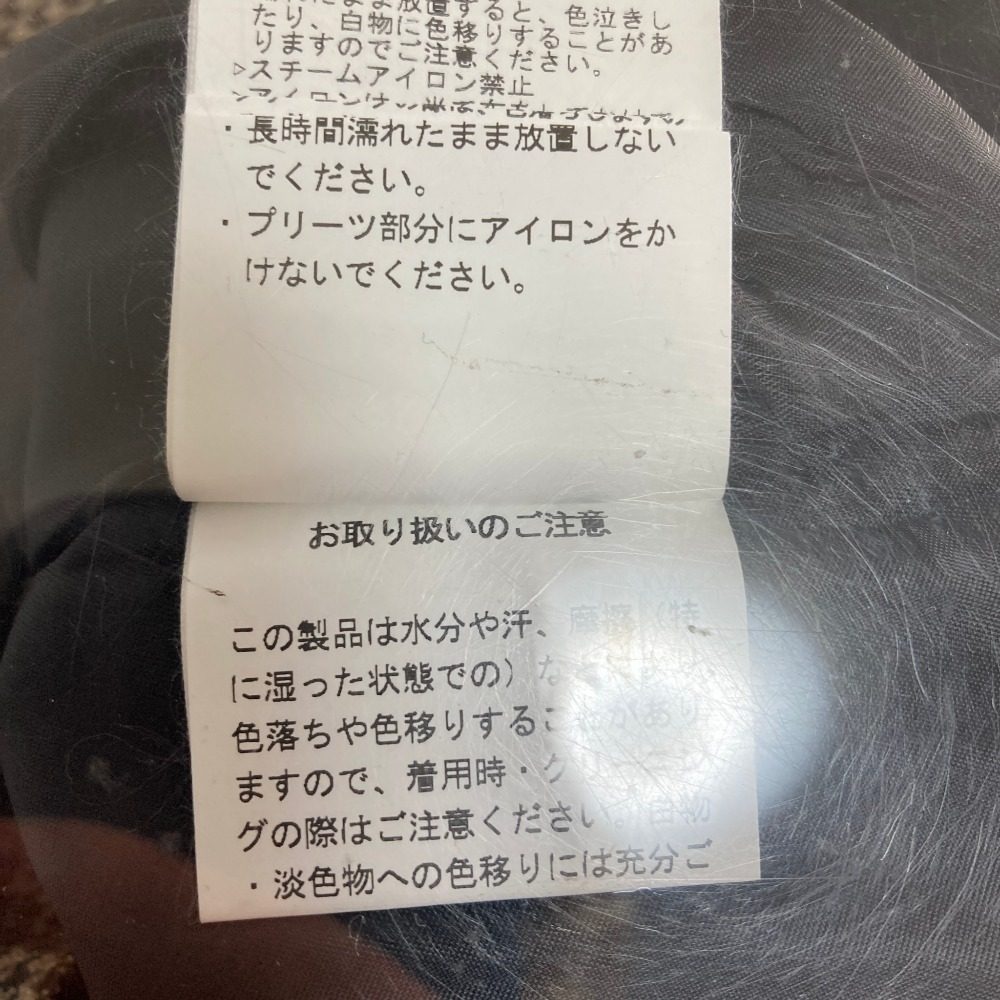 まま放置すると、色泣きし
たり、白物に色移りすることがあ
りますのでご注意ください。
▷スチームアイロン禁止
・長時間濡れたまま放置しない
でください。
・プリーツ部分にアイロンをか
けないでください。
お取り扱いのご注意
この製品は水分や汗、摩擦（特
に湿った状態での）な
色落ちや色移りすることがあり
ますので、着用時・クリーニン
グの際はご注意ください。白物
・淡色物への色移りには充分ご